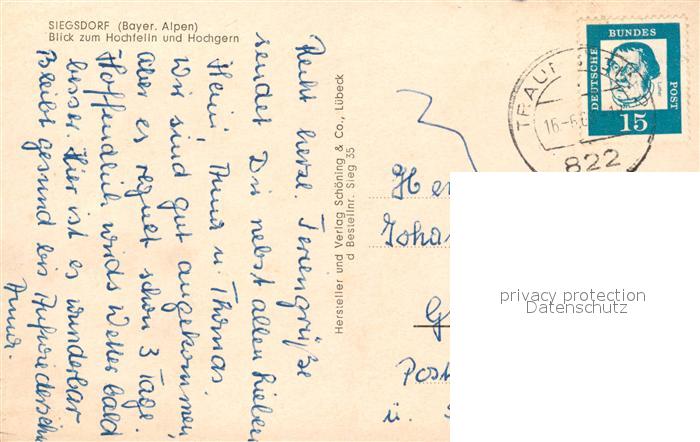 SIEGSDORF (Bayer. Alpen)
Blick zum Hochfelln und Hochgern
Recht herzl. Feriengrüße
sendet Dir nebst allen Lieben
Heini Anna u. Thomas.
Wir sind gut angekommen,
aber es regnet schon 3 Tage.
Hoffendlich wirds Wetter bald
besser. Hier ist es wunderbar
Bleibt gesund bis Aufwiederschn
Anna.
Hersteller und Verlag Schöning & Co., Lübeck
d Bestellnr. Sieg 35
DEUTSCHE
BUNDES
POST
Luther
15
TRAUN
16.-6.6
822
Her
Joha
G
Post
ü. S
privacy protection
Datenschutz